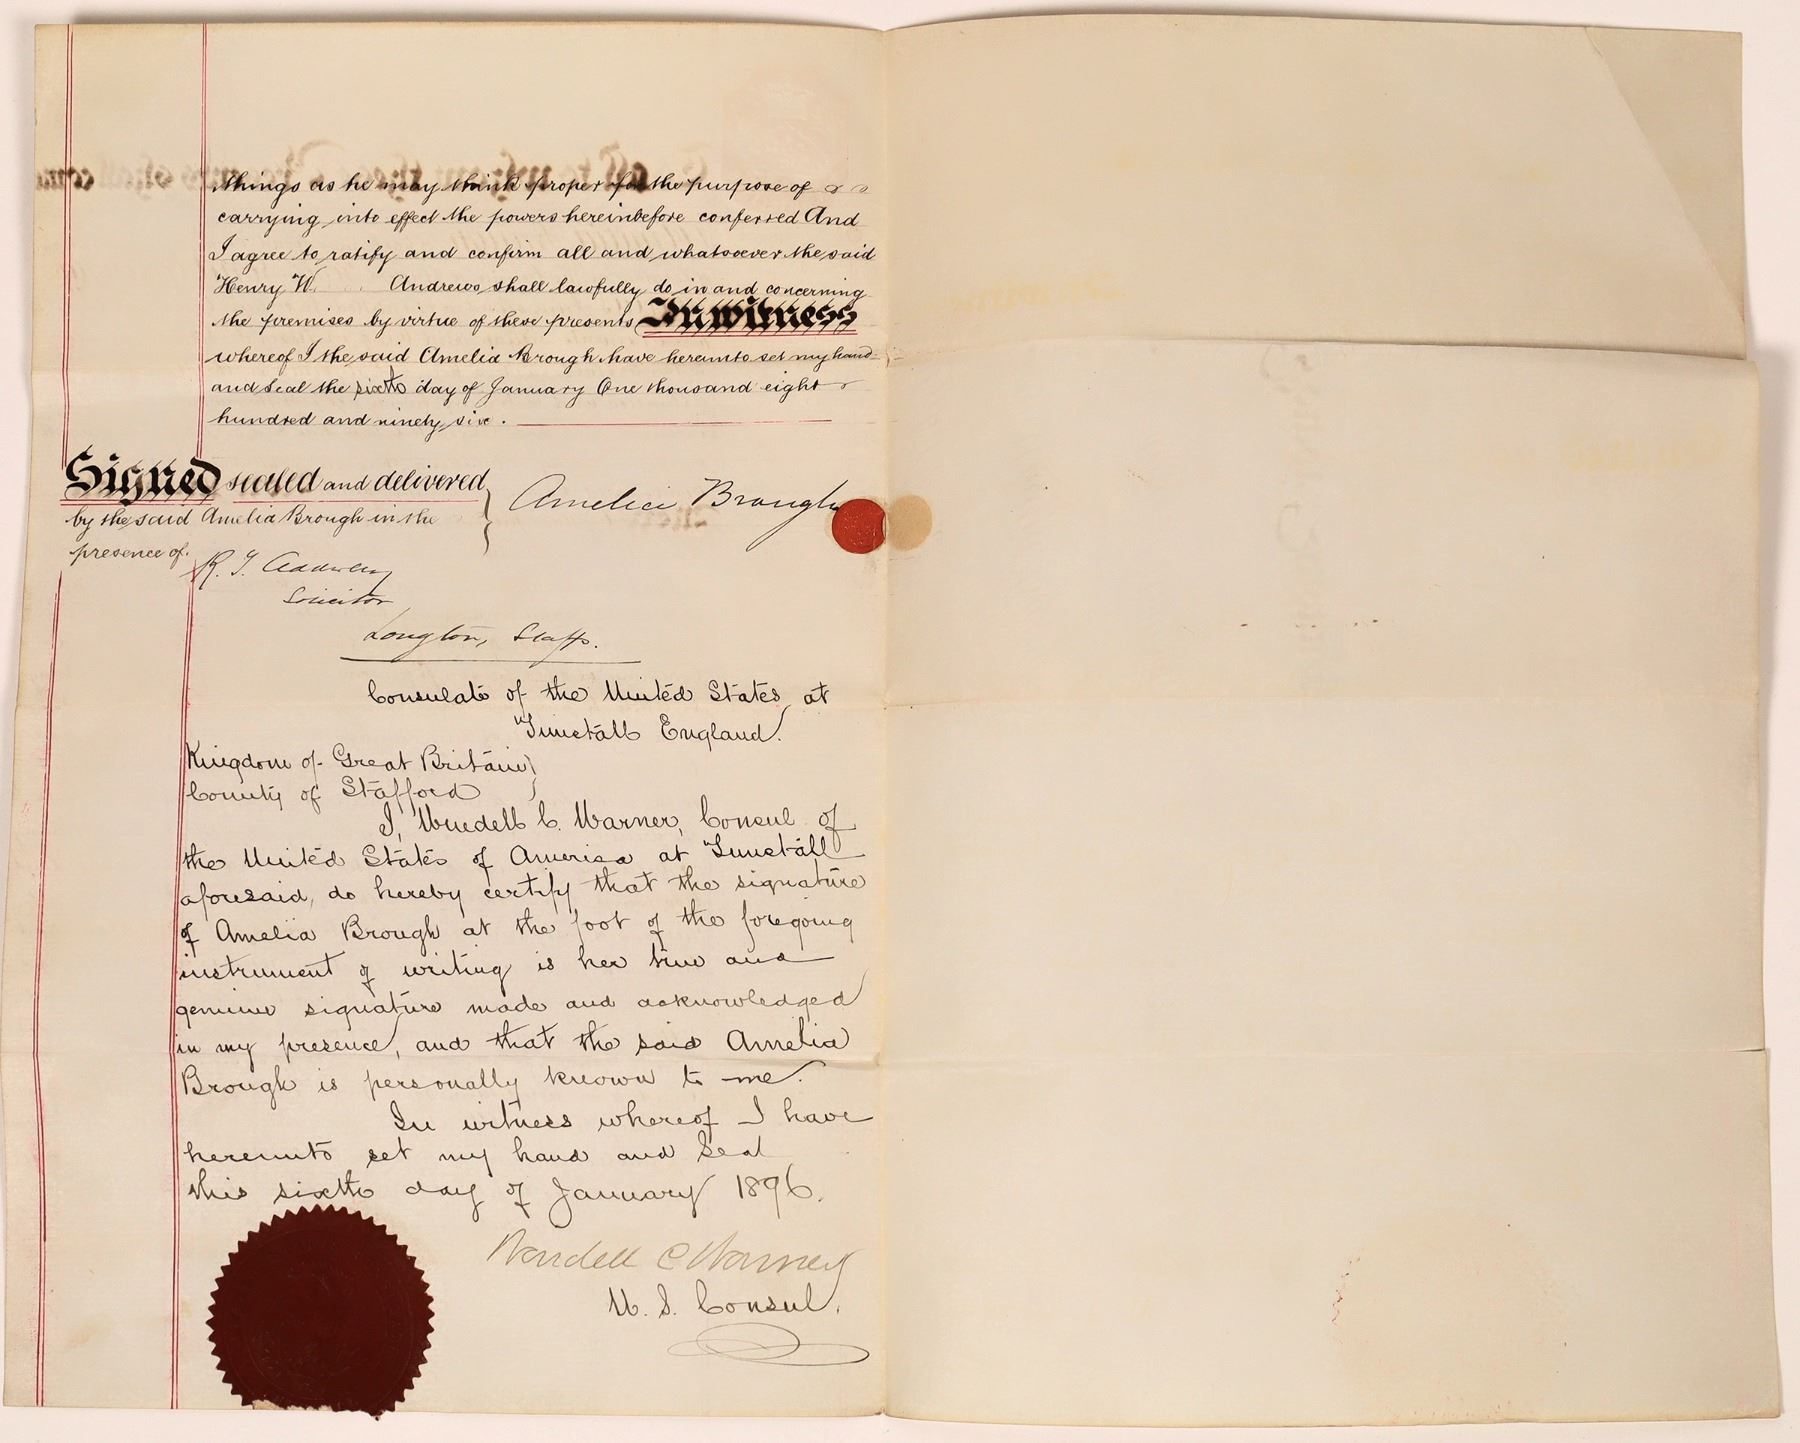 things as he may think proper for the purpose of
carrying into effect the powers hereinbefore conferred And
I agree to ratify and confirm all and whatsoever the said
Henry W. Andrews shall lawfully do in and concerning
the premises by virtue of these presents In witness
whereof I the said Amelia Brough have hereunto set my hand
and seal the sixth day of January One thousand eight
hundred and ninety six.
Signed sealed and delivered
by the said Amelia Brough in the
presence of.
Amelia Brough
R. T.
Solicitor
Longton, Staffs.
Consulate of the United States at
Tunstall England.
Kingdom of Great Britain
County of Stafford
I, Wendell C. Warner, Consul of
the United States of America at Tunstall
aforesaid, do hereby certify that the signature
of Amelia Brough at the foot of the foregoing
instrument of writing is her true and
genuine signature made and acknowledged
in my presence, and that the said Amelia
Brough is personally known to me.
In witness whereof I have
hereunto set my hand and Seal
this sixth day of January 1896.
Wendell C Warner
U. S. Consul.